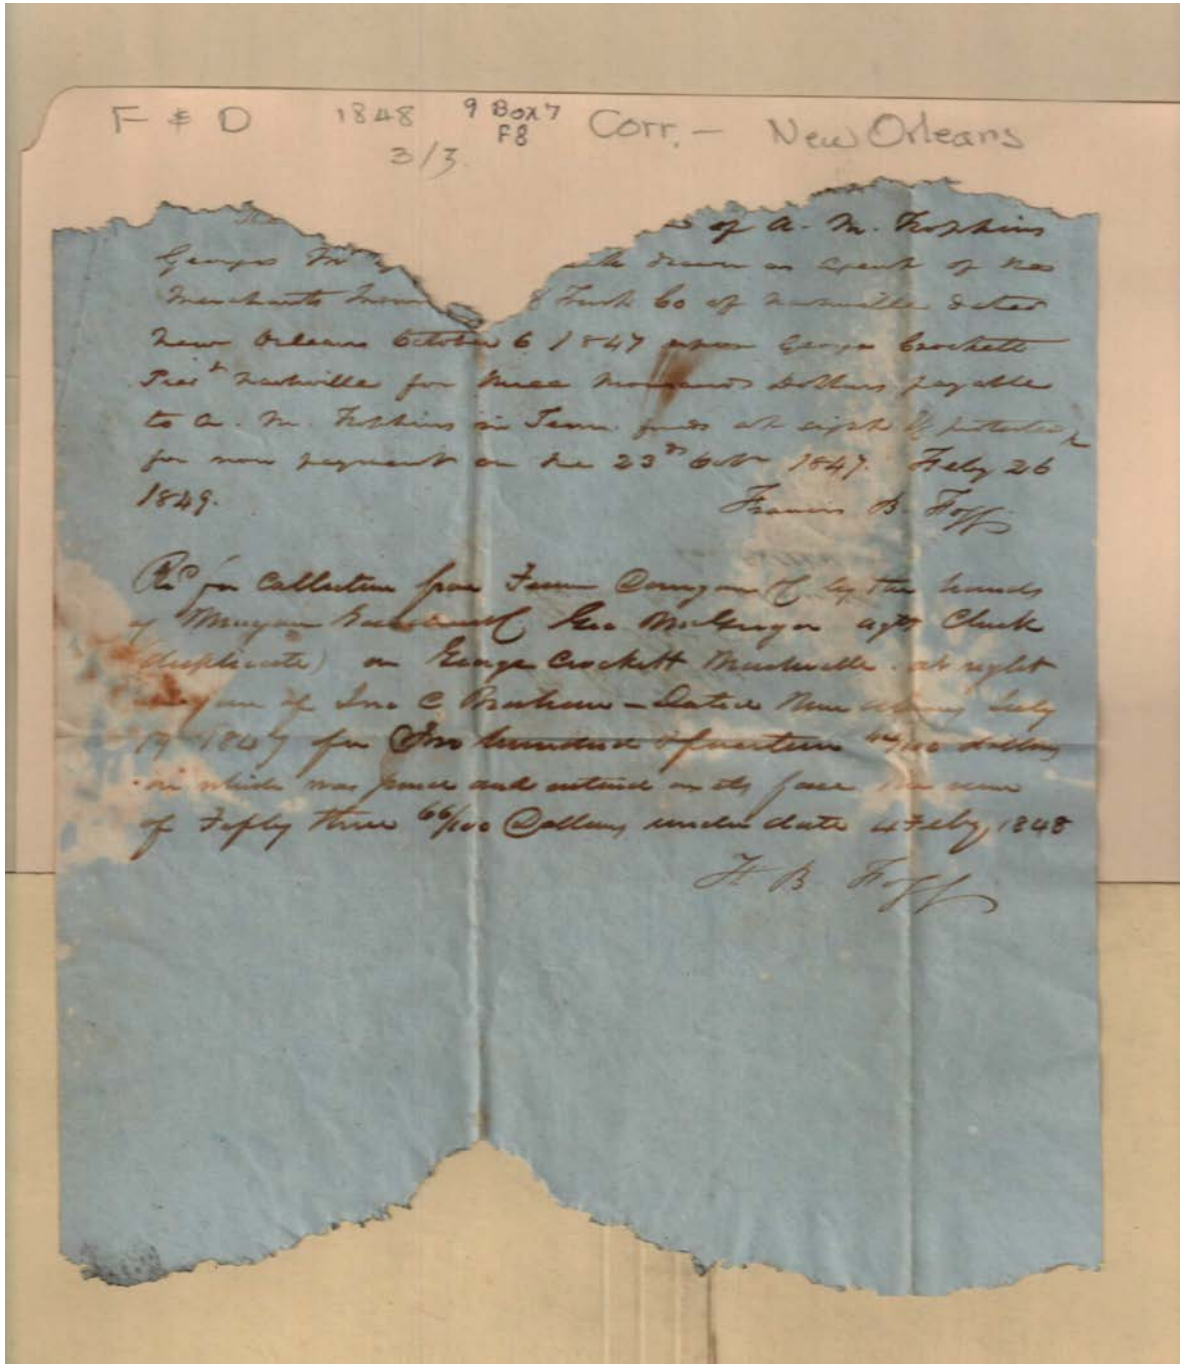 F & D 1848 9 Box 7 Corr. - New Orleans
3/3. F8
of A. M. Hopkins
George drawn as agent of the
Merchants & Trust Co of Nashville dated
New Orleans October 6 1847 upon George Crockett
Pres^t Nashville for three thousand Dollars payable
to A. M. Hopkins in Tenn. funds at sight & protested
for non payment on the 23^rd Octr 1847. Feby 26
1849. Francis B. Fogg
Rec^d for collection from by the hands
of Geo. McGregor agts Check
(duplicate) on George Crockett Nashville at sight
in favor of Jno C - Dated New Orleans July
19 1847 for Two hundred & fourteen /100 dollars
on which was paid and entered on its face the sum
of Fifty three 66/100 Dollars under date 4 Feby, 1848
F B Fogg